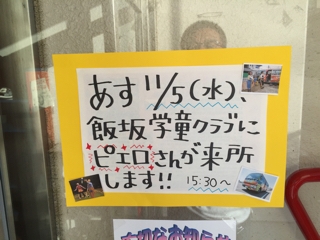 あす 11/5(水)、
飯坂学童クラブに
ピエロさんが来所
します!! 15:30〜
大切なお知らせ